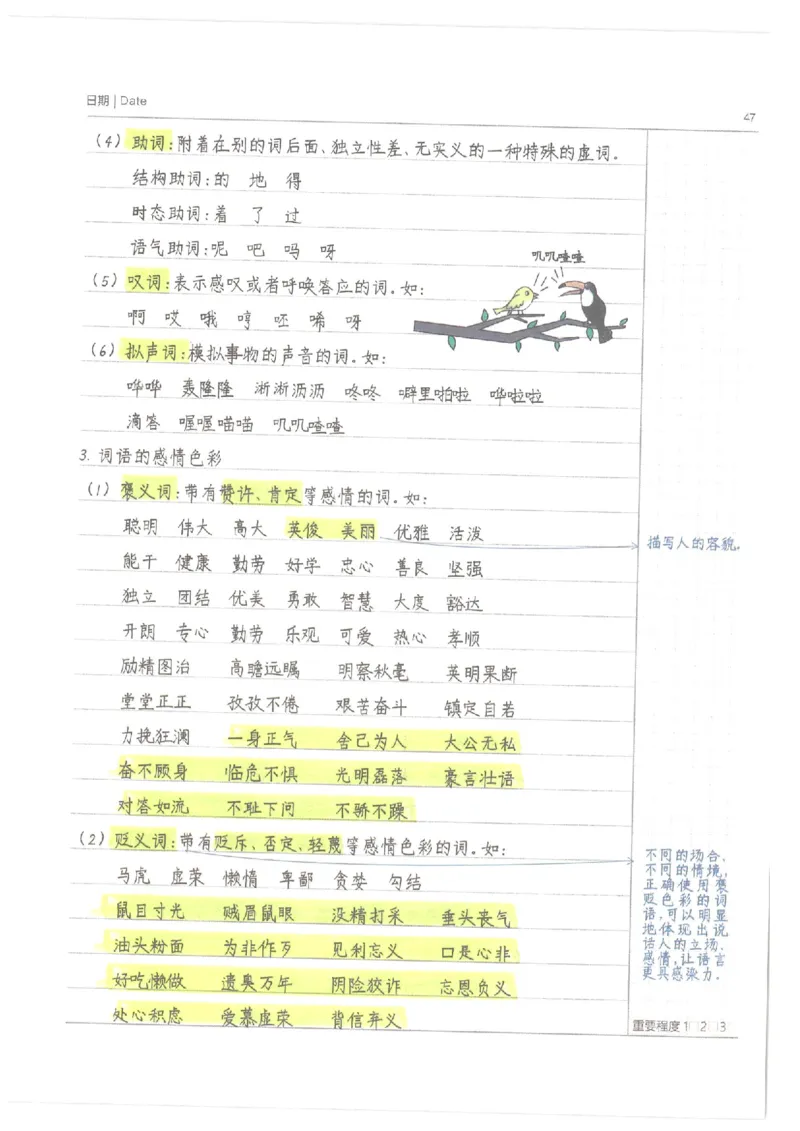 日期 | Date
47
(4) 助词:附着在别的词后面、独立性差、无实义的一种特殊的虚词。
结构助词:的 地 得
时态助词:着 了 过
语气助词:呢 吧 吗 呀
叽叽喳喳
(5) 叹词:表示感叹或者呼唤答应的词。如:
啊 哎 哦 哼 呸 唏 呀
(6) 拟声词:模拟事物的声音的词。如:
哗哗 轰隆隆 淅淅沥沥 咚咚 噼里啪啦 哗啦啦
滴答 喔喔喵喵 叽叽喳喳
3. 词语的感情色彩
(1) 褒义词:带有赞许、肯定等感情的词。如:
聪明 伟大 高大 英俊 美丽 优雅 活泼
描写人的容貌。
能干 健康 勤劳 好学 忠心 善良 坚强
独立 团结 优美 勇敢 智慧 大度 豁达
开朗 专心 勤劳 乐观 可爱 热心 孝顺
励精图治 高瞻远瞩 明察秋毫 英明果断
堂堂正正 孜孜不倦 艰苦奋斗 镇定自若
力挽狂澜 一身正气 舍己为人 大公无私
奋不顾身 临危不惧 光明磊落 豪言壮语
对答如流 不耻下问 不骄不躁
(2) 贬义词:带有贬斥、否定、轻蔑等感情色彩的词。如:
马虎 虚荣 懒惰 卑鄙 贪婪 勾结
鼠目寸光 贼眉鼠眼 没精打采 垂头丧气
油头粉面 为非作歹 见利忘义 口是心非
好吃懒做 遗臭万年 阴险狡诈 忘恩负义
处心积虑 爱慕虚荣 背信弃义
不同的场合、
不同的情境,
正确使用褒
贬色彩的词
语,可以明显
地体现出说
话人的立场、
感情,让语言
更具感染力。
重要程度 1□2□3□